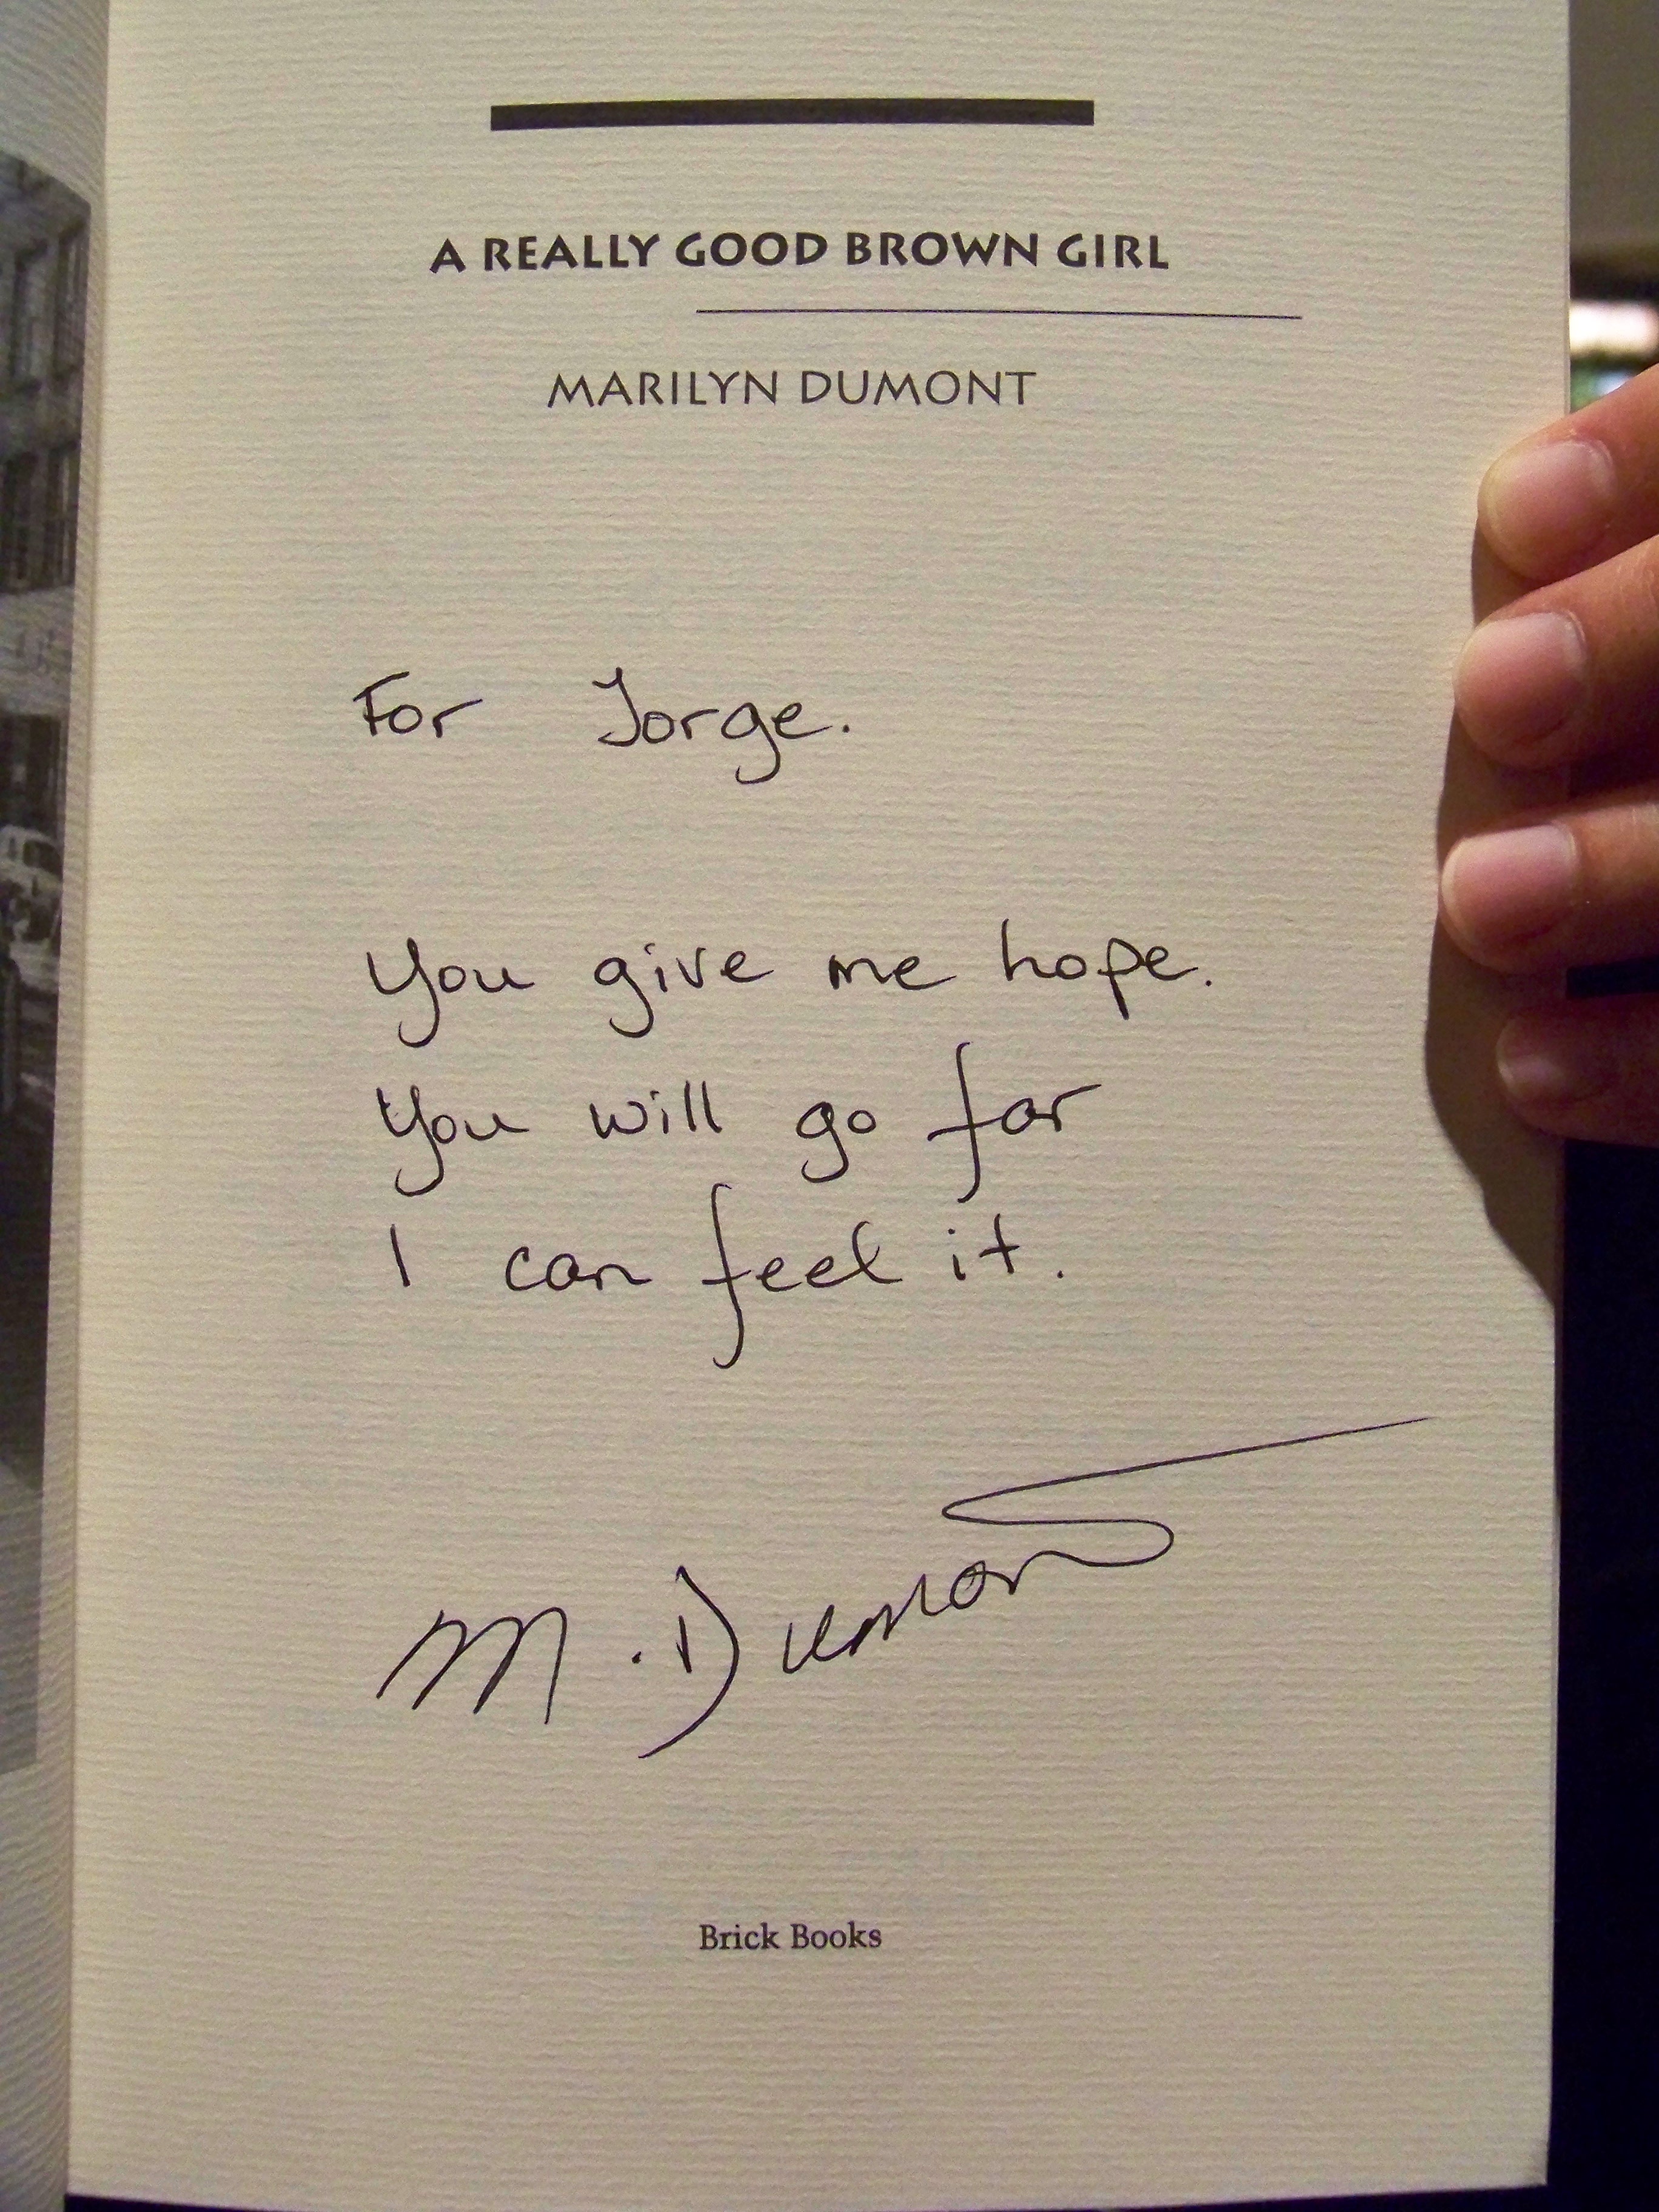 A REALLY GOOD BROWN GIRL
MARILYN DUMONT
For Jorge.
You give me hope.
You will go far
I can feel it.
M. Dumont
Brick Books